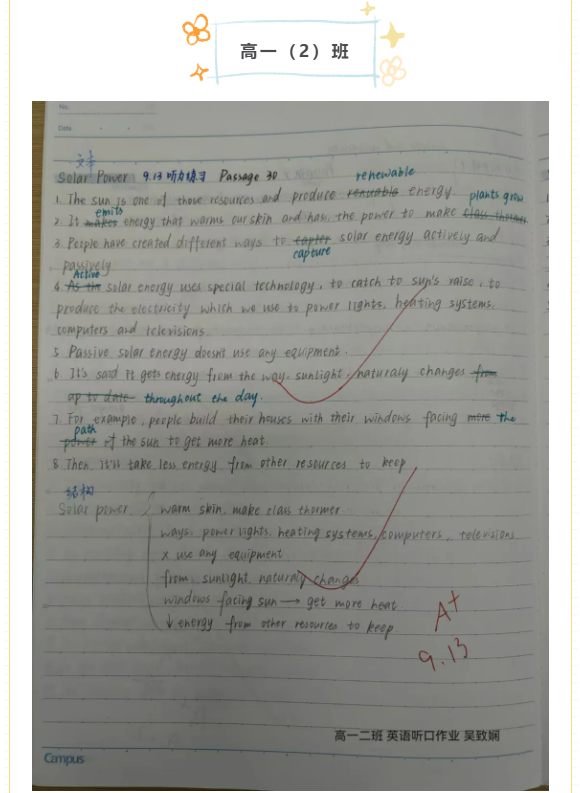 高一（2）班
No.
Date
文本
Solar Power 9.13 听力练习 Passage 30
renewable
1. The sun is one of those resources and produce renuable energy
emits plants grow
2. It makes energy that warms our skin and has the power to make class thormer
3. People have created different ways to capter solar energy actively and
capture
passively
Active
4. As the solar energy uses special technology, to catch to sun's raise, to
produce the electricity which we use to power lights, heating systems,
computers and televisions.
5 Passive solar energy doesn't use any equipment.
6. It's said it gets energy from the way, sunlight, naturaly changes from
ap to date throughout the day.
7. For example, people build their houses with their windows facing more the
path
power of the sun to get more heat.
8. Then, it'll take less energy from other resources to keep
结构
Solar power.
warm skin, make class thormer
ways: power lights, heating systems, computers, televisions
x use any equipment
from: sunlight, naturaly changes
windows facing sun → get more heat
↓ energy from other resources to keep.
A+
9.13
高一二班 英语听口作业 吴致娴
Campus